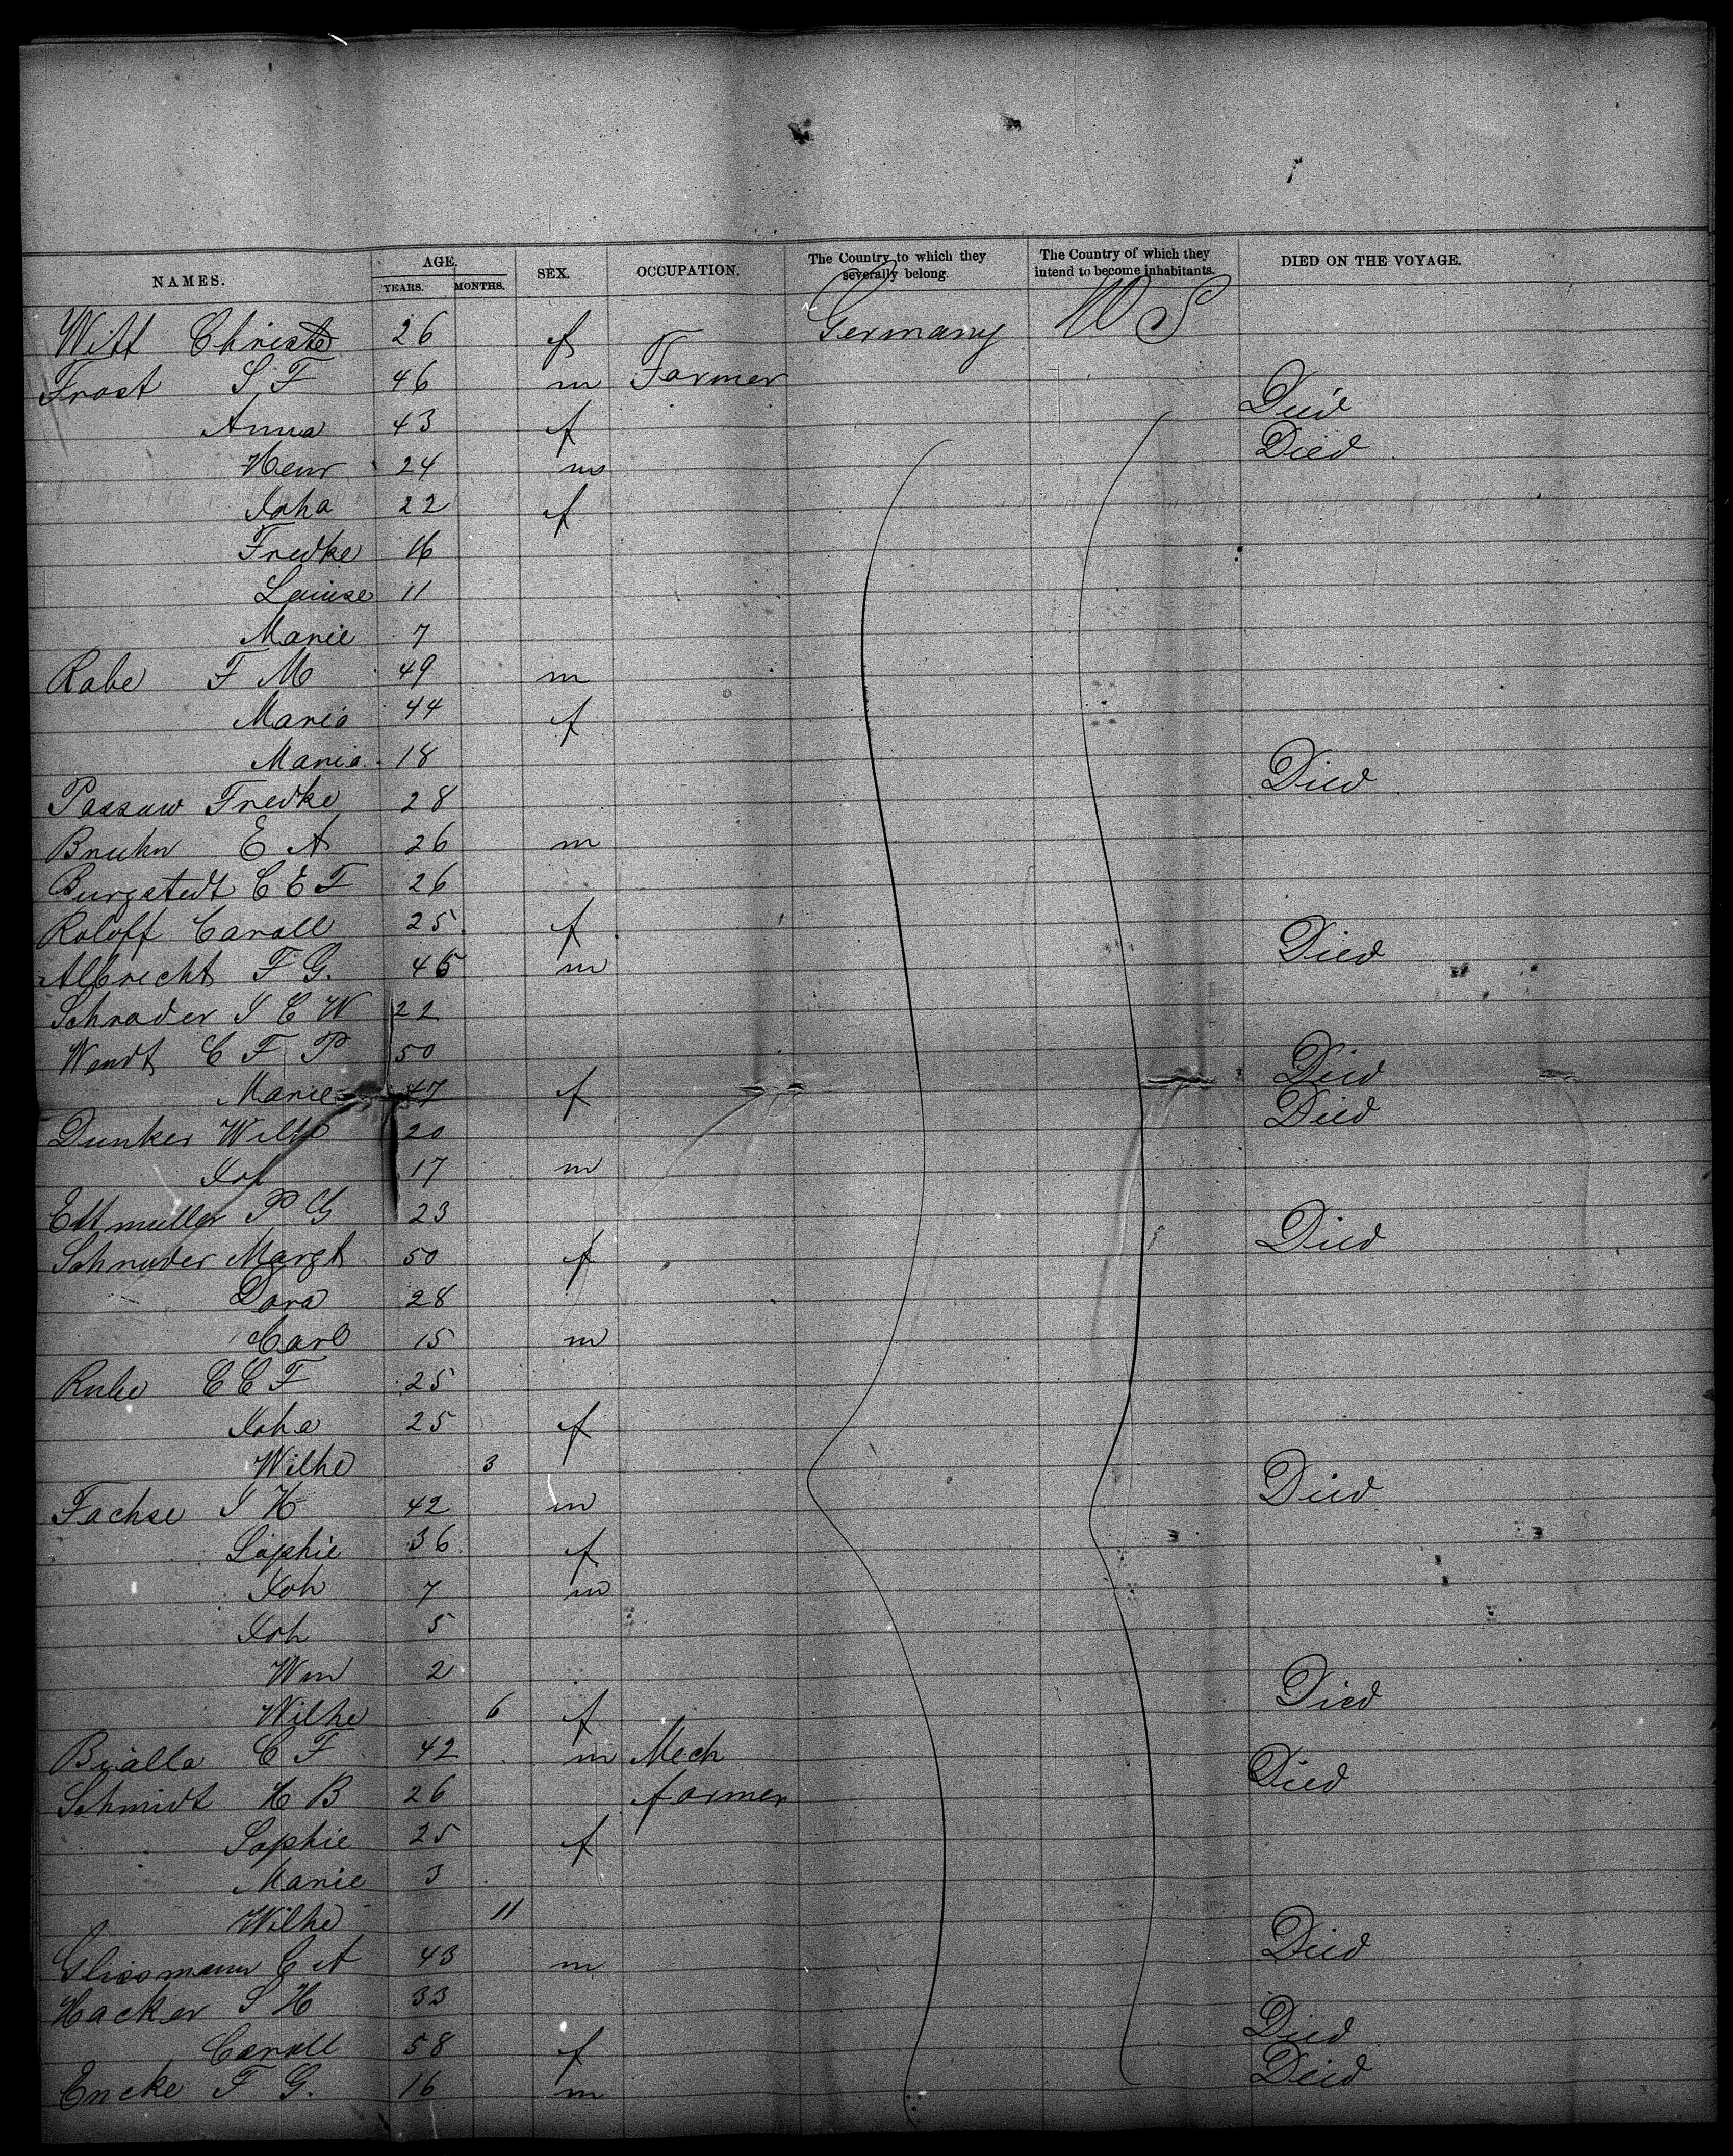 NAMES. AGE. YEARS. MONTHS. SEX. OCCUPATION. The Country to which they severally belong. The Country of which they intend to become inhabitants. DIED ON THE VOYAGE.
Witt 26 f Germany U S
Frost S F 46 m Farmer
Anna 43 f Died
Henr 24 m Died
Joha 22 f
Fredke 16
Louise 11
Marie 7
Rabe F M 49 m
Maria 44 f
Maria 18
Passaw Fredke 28 Died
Bruhn E A 26 m
Burgstedt C E F 26
Roloff Caroll 25 f
Albrecht F G. 45 m Died
Schrader J C W 22
Wendt C F P 50
Marie 47 f Died
Dunker Wilh 20 Died
Joh 17 m
Ettmuller P G 23
Schruder Margt 50 f Died
Dora 28
Carl 15 m
Rube C C F 25
Joha 25 f
Wilhe 3
Fachse J H 42 m Died
Sophie 36 f
Joh 7 m
Joh 5
Wm 2
Wilhe 6 f Died
Bialla C F 42 m Mech
Schmidt H B 26 farmer Died
Sophie 25 f
Marie 3
Wilhe 11
Glissmann C A 43 m Died
Hacker S H 33
Caroll 58 f Died
Encke F G. 16 m Died